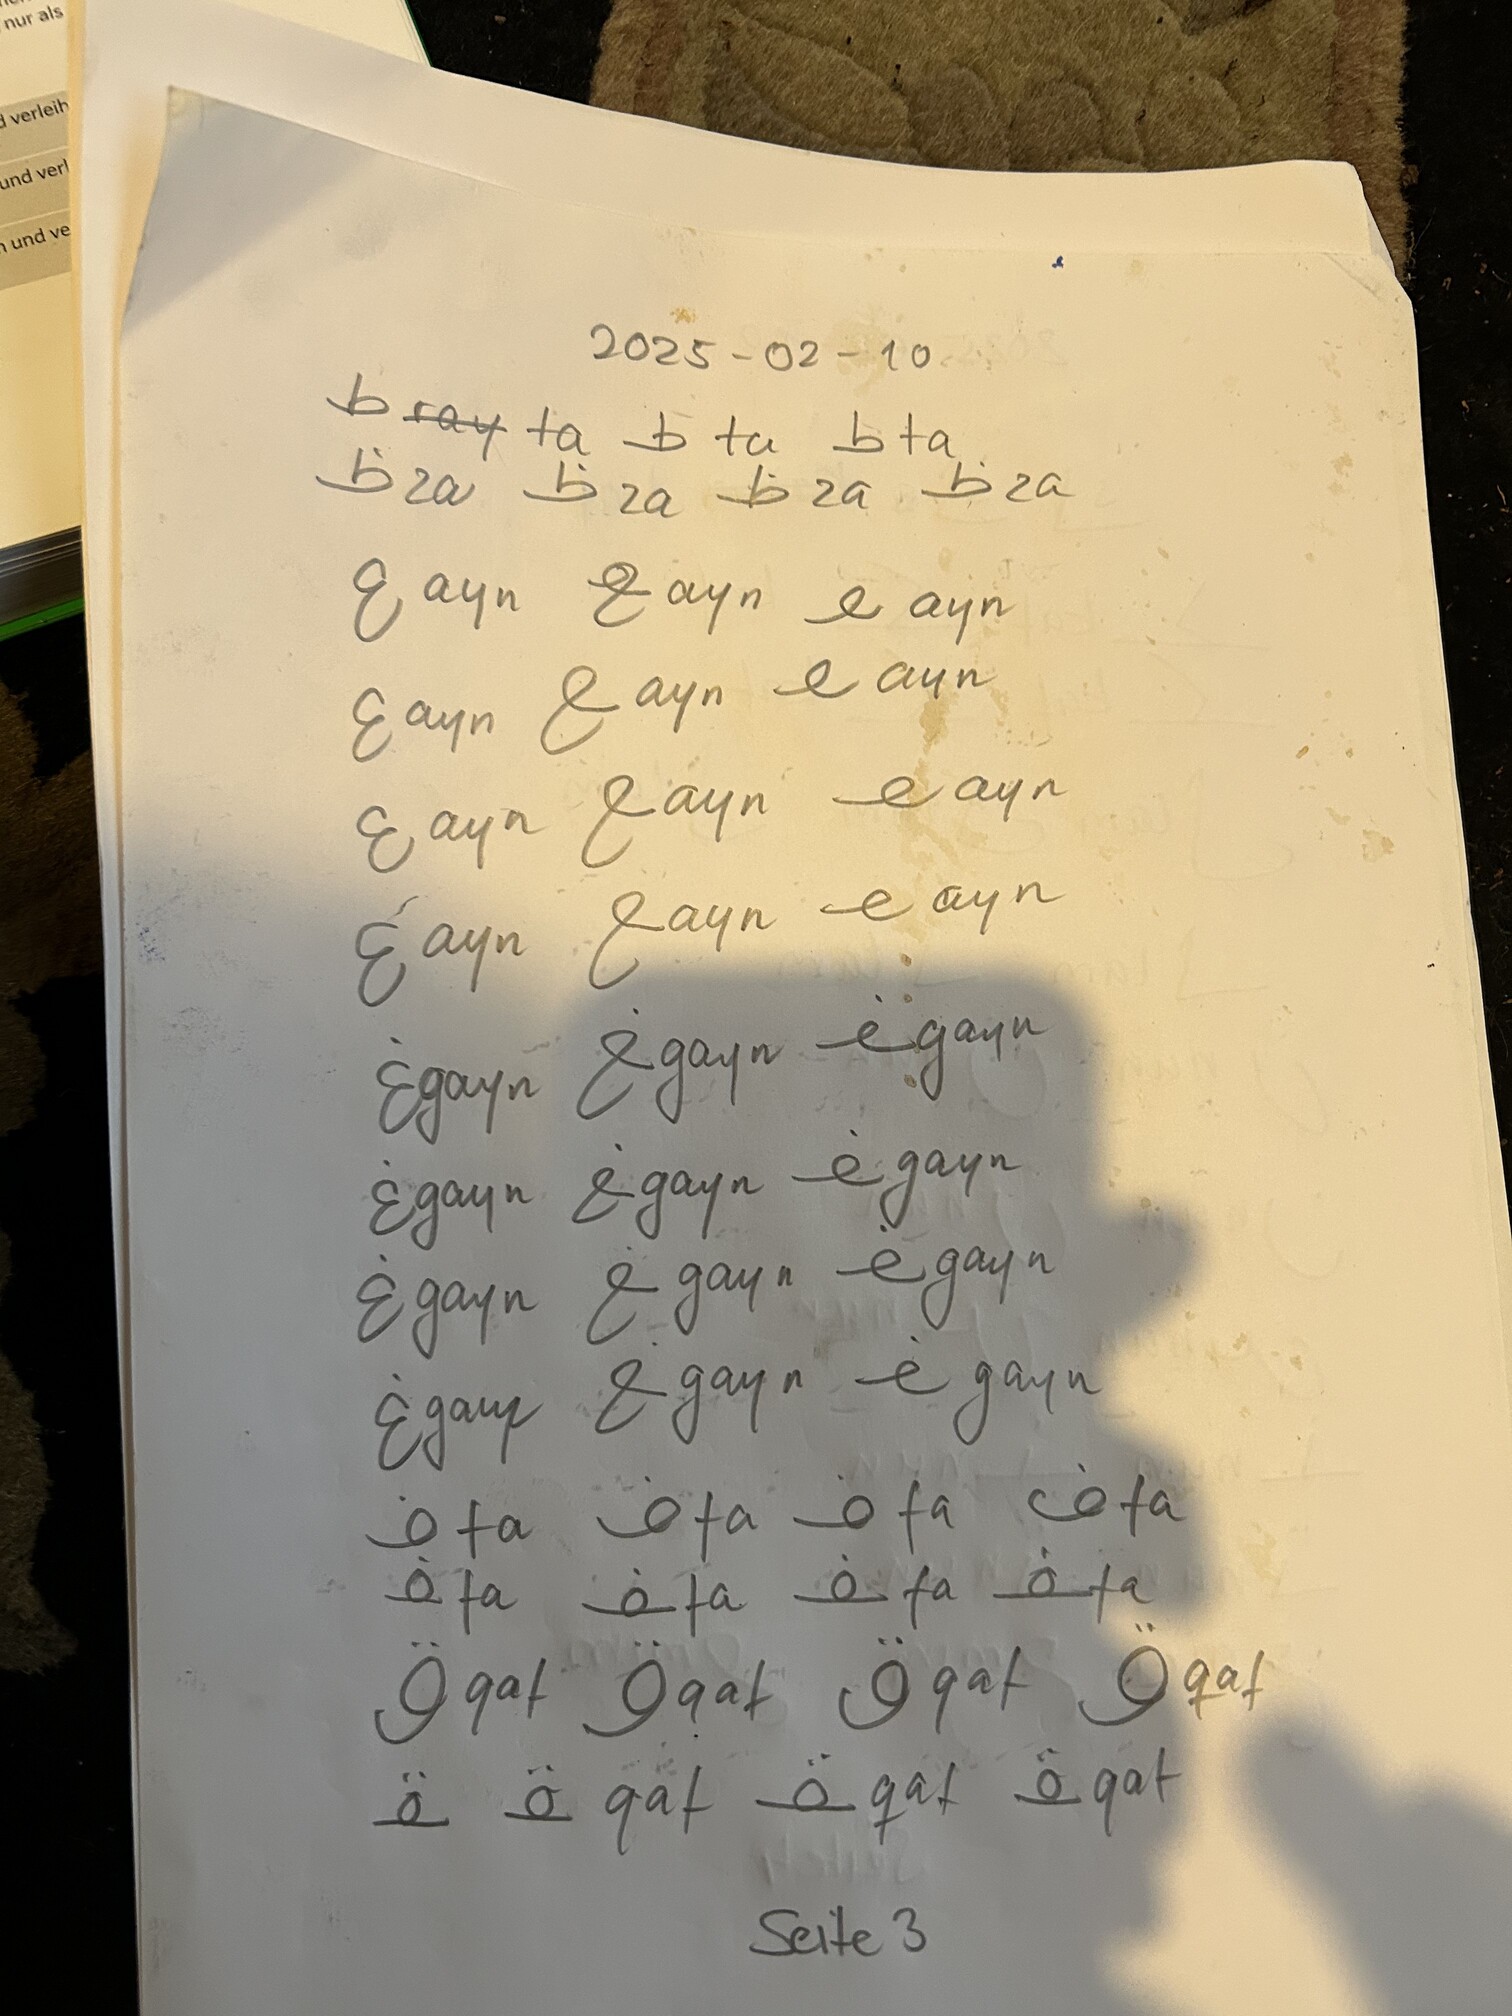 nur als
d verleih
und verl
n und ve
2025-02-10
ط ~~ray~~ ta ط ta ط ta
ظ za ظ za ظ za ظ za
ع ayn ع ayn ع ayn
ع ayn ع ayn ع ayn
ع ayn ع ayn ع ayn
ع ayn ع ayn ع ayn
غ gayn غ gayn غ gayn
غ gayn غ gayn غ gayn
غ gayn غ gayn غ gayn
غ gayn غ gayn غ gayn
ف fa ف fa ف fa ف fa
ف fa ف fa ف fa ف fa
ق qaf ق qaf ق qaf ق qaf
ق ق qaf ق qaf ق qaf
Seite 3